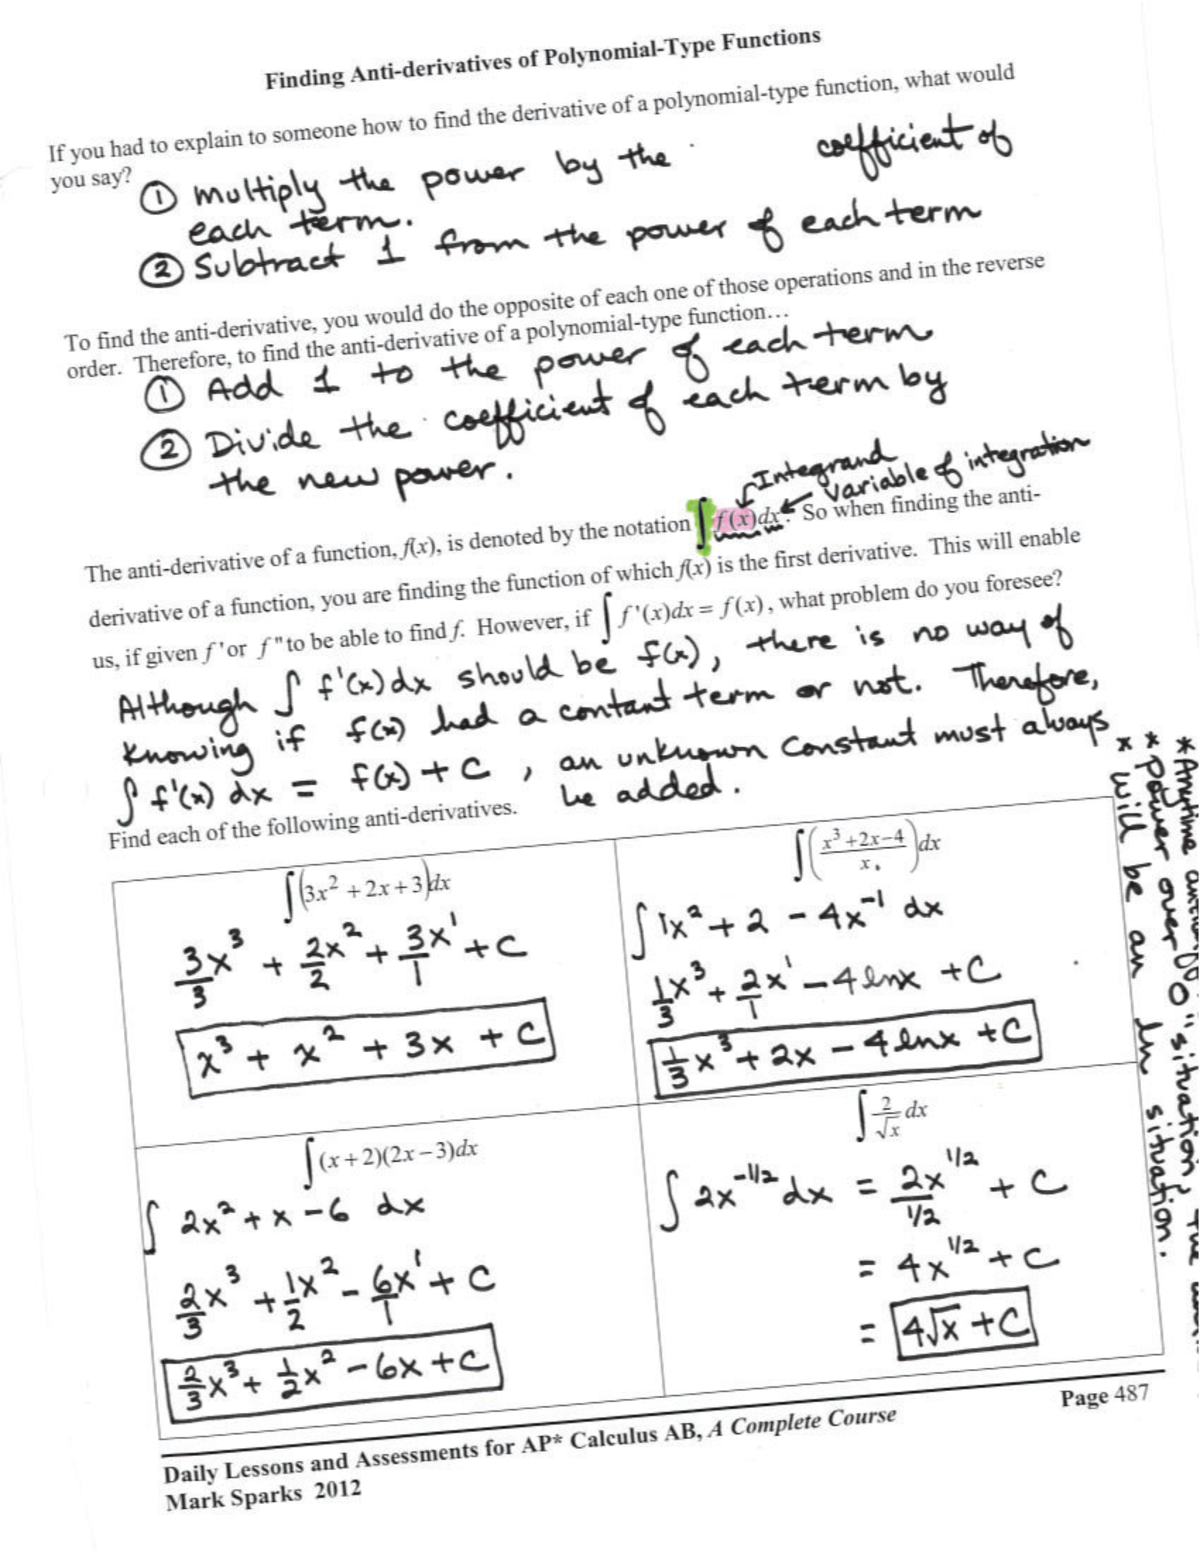 Finding Anti-derivatives of Polynomial-Type Functions
If you had to explain to someone how to find the derivative of a polynomial-type function, what would
you say?
① Multiply the power by the coefficient of
each term.
② Subtract 1 from the power of each term
To find the anti-derivative, you would do the opposite of each one of those operations and in the reverse
order. Therefore, to find the anti-derivative of a polynomial-type function…
① Add 1 to the power of each term
② Divide the coefficient of each term by
the new power.
Integrand
Variable of integration
The anti-derivative of a function, f(x), is denoted by the notation ∫ f(x)dx. So when finding the anti-
derivative of a function, you are finding the function of which f(x) is the first derivative. This will enable
us, if given f' or f" to be able to find f. However, if ∫ f'(x)dx = f(x), what problem do you foresee?
Although ∫ f'(x)dx should be f(x), there is no way of
knowing if f(x) had a contant term or not. Therefore,
∫ f'(x) dx = f(x) + C, an unknown constant must always
be added.
Find each of the following anti-derivatives.
∫(3x² + 2x + 3)dx
3/3 x³ + 2x²/2 + 3x¹/1 + C
x³ + x² + 3x + C
∫((x³ + 2x − 4)/x)dx
∫ 1x² + 2 − 4x⁻¹ dx
1/3 x³ + 2/1 x¹ − 4lnx + C
1/3 x³ + 2x − 4lnx + C
∫(x + 2)(2x − 3)dx
∫ 2x² + x − 6 dx
2/3 x³ + 1/2 x² − 6x¹/1 + C
2/3 x³ + 1/2 x² − 6x + C
∫ 2/√x dx
∫ 2x^(-1/2) dx = 2x^(1/2)/(1/2) + C
= 4x^(1/2) + C
= 4√x + C
* Anytime
* Power over 0" situation, the
* will be an ln situation.
Page 487
Daily Lessons and Assessments for AP* Calculus AB, A Complete Course
Mark Sparks 2012